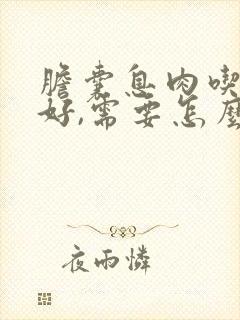 膽囊息肉喫
好,需要怎麼
夜雨憐